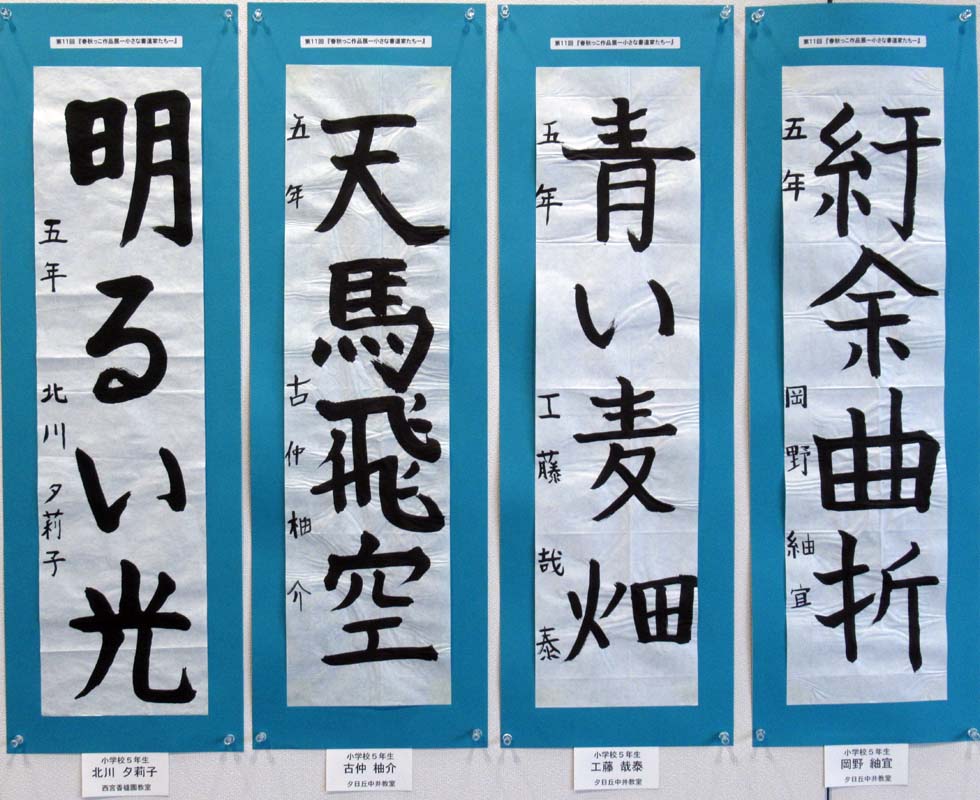 第11回『春秋っこ作品展ー小さな書道家たちー』
明るい光
五年 北川 夕莉子
小学校5年生
北川 夕莉子
西宮香櫨園教室
第11回『春秋っこ作品展ー小さな書道家たちー』
天馬飛空
五年 古仲 柚介
小学校5年生
古仲 柚介
夕日丘中井教室
第11回『春秋っこ作品展ー小さな書道家たちー』
青い麦畑
五年 工藤 哉泰
小学校5年生
工藤 哉泰
夕日丘中井教室
第11回『春秋っこ作品展ー小さな書道家たちー』
紆余曲折
五年 岡野 紬宜
小学校5年生
岡野 紬宜
夕日丘中井教室